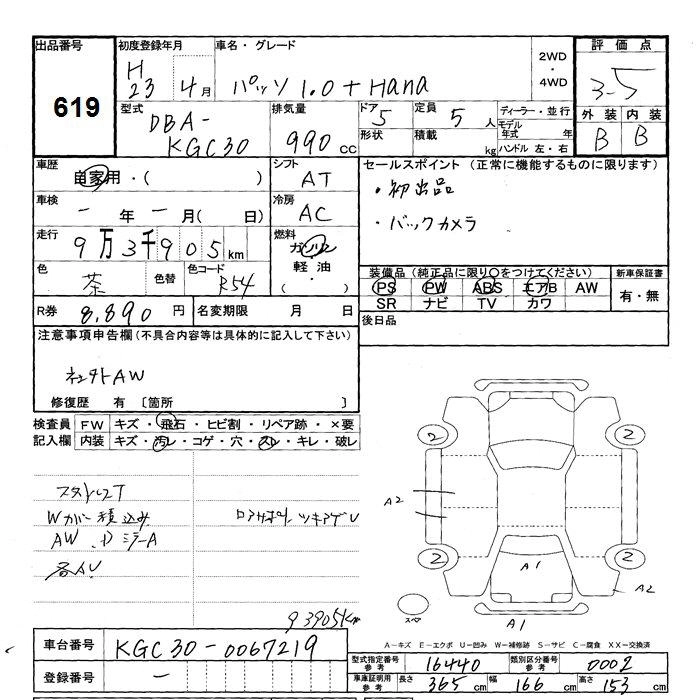 出品番号
619
初度登録年月
H
23 4月
車名・グレード
パッソ 1.0 + Hana
2WD
・
4WD
評価点
3.5
外装 内装
B B
型式
DBA-
KGC30
排気量
990 cc
ドア 5
形状
定員 5 人
積載 kg
ディーラー・並行
モデル
年式 年
ハンドル 左・右
車歴
自家用・( )
シフト
AT
車検
- 年 - 月( 日)
冷房
AC
走行
9万3千905 km
燃料
ガソリン
軽油・
( )
色
茶
色替
色コード
R54
R券 8,890 円
名変期限 月 日
セールスポイント (正常に機能するものに限ります)
・初出品
・バックカメラ
装備品 (純正品に限り○をつけてください)
PS PW ABS エアB AW
SR ナビ TV カワ
新車保証書
有・無
後日品
注意事項申告欄 (不具合内容等は具体的に記入して下さい)
AW
修復歴 有 〔箇所 〕
検査員
記入欄
FW キズ・飛石・ヒビ割・リペア跡・×要
内装 キズ・汚レ・コゲ・穴・スレ・キレ・破レ
Wカバー積込み
AW ミラーA
ツキアゲ
93905km
2
2
2
2
A2
A1
A2
A1
スペア
A-キズ E-エクボ U-凹み W-補修跡 S-サビ C-腐食 XX-交換済
車台番号 KGC30-0067219
登録番号 -
型式指定番号
参考
16440
類別区分番号
参考
0002
車庫証明用
参考
長さ 365 cm 幅 166 cm 高さ 153 cm